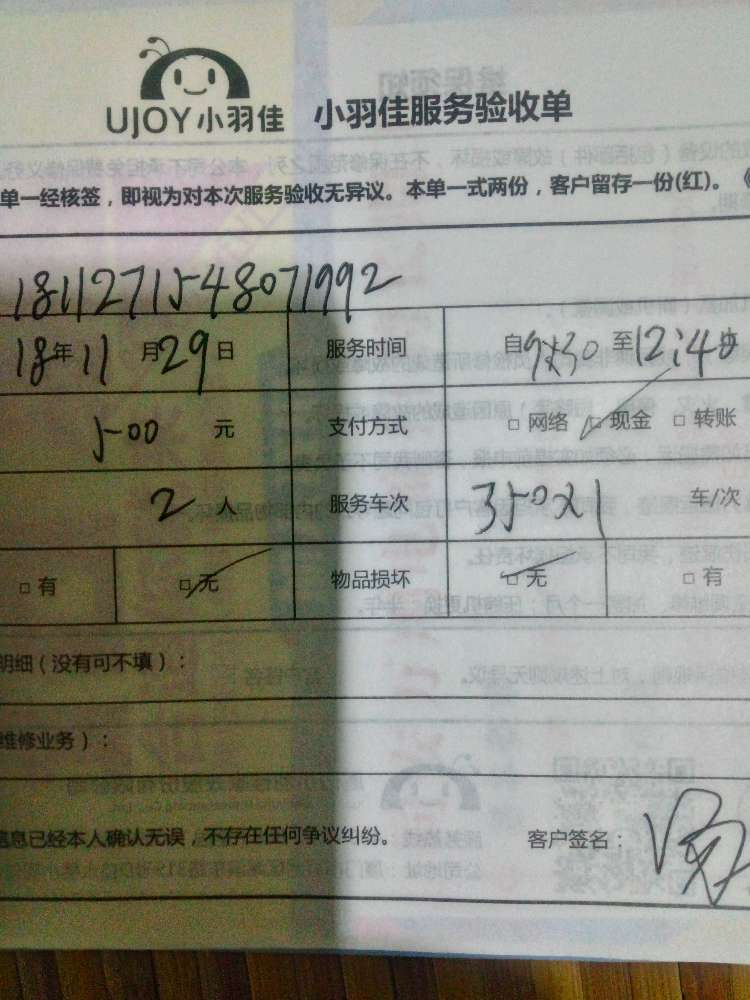 UJOY小羽佳 小羽佳服务验收单
单一经核签，即视为对本次服务验收无异议。本单一式两份，客户留存一份(红)。《
1811271548071992
18年11月29日 服务时间 自9:30至12:40
500元 支付方式 □网络 □现金 □转账
2人 服务车次 350x1 车/次
□有 □无 物品损坏 □无 □有
明细（没有可不填）：
维修业务）：
信息已经本人确认无误，不存在任何争议纠纷。 客户签名：